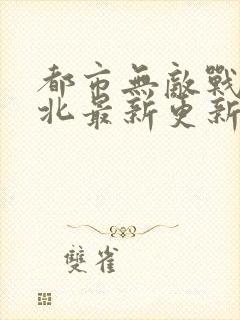 都市無敵戰
北最新更新
雙雀